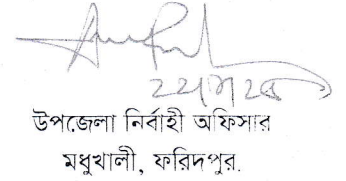 উপজেলা নির্বাহী অফিসার
মধুখালী, ফরিদপুর.